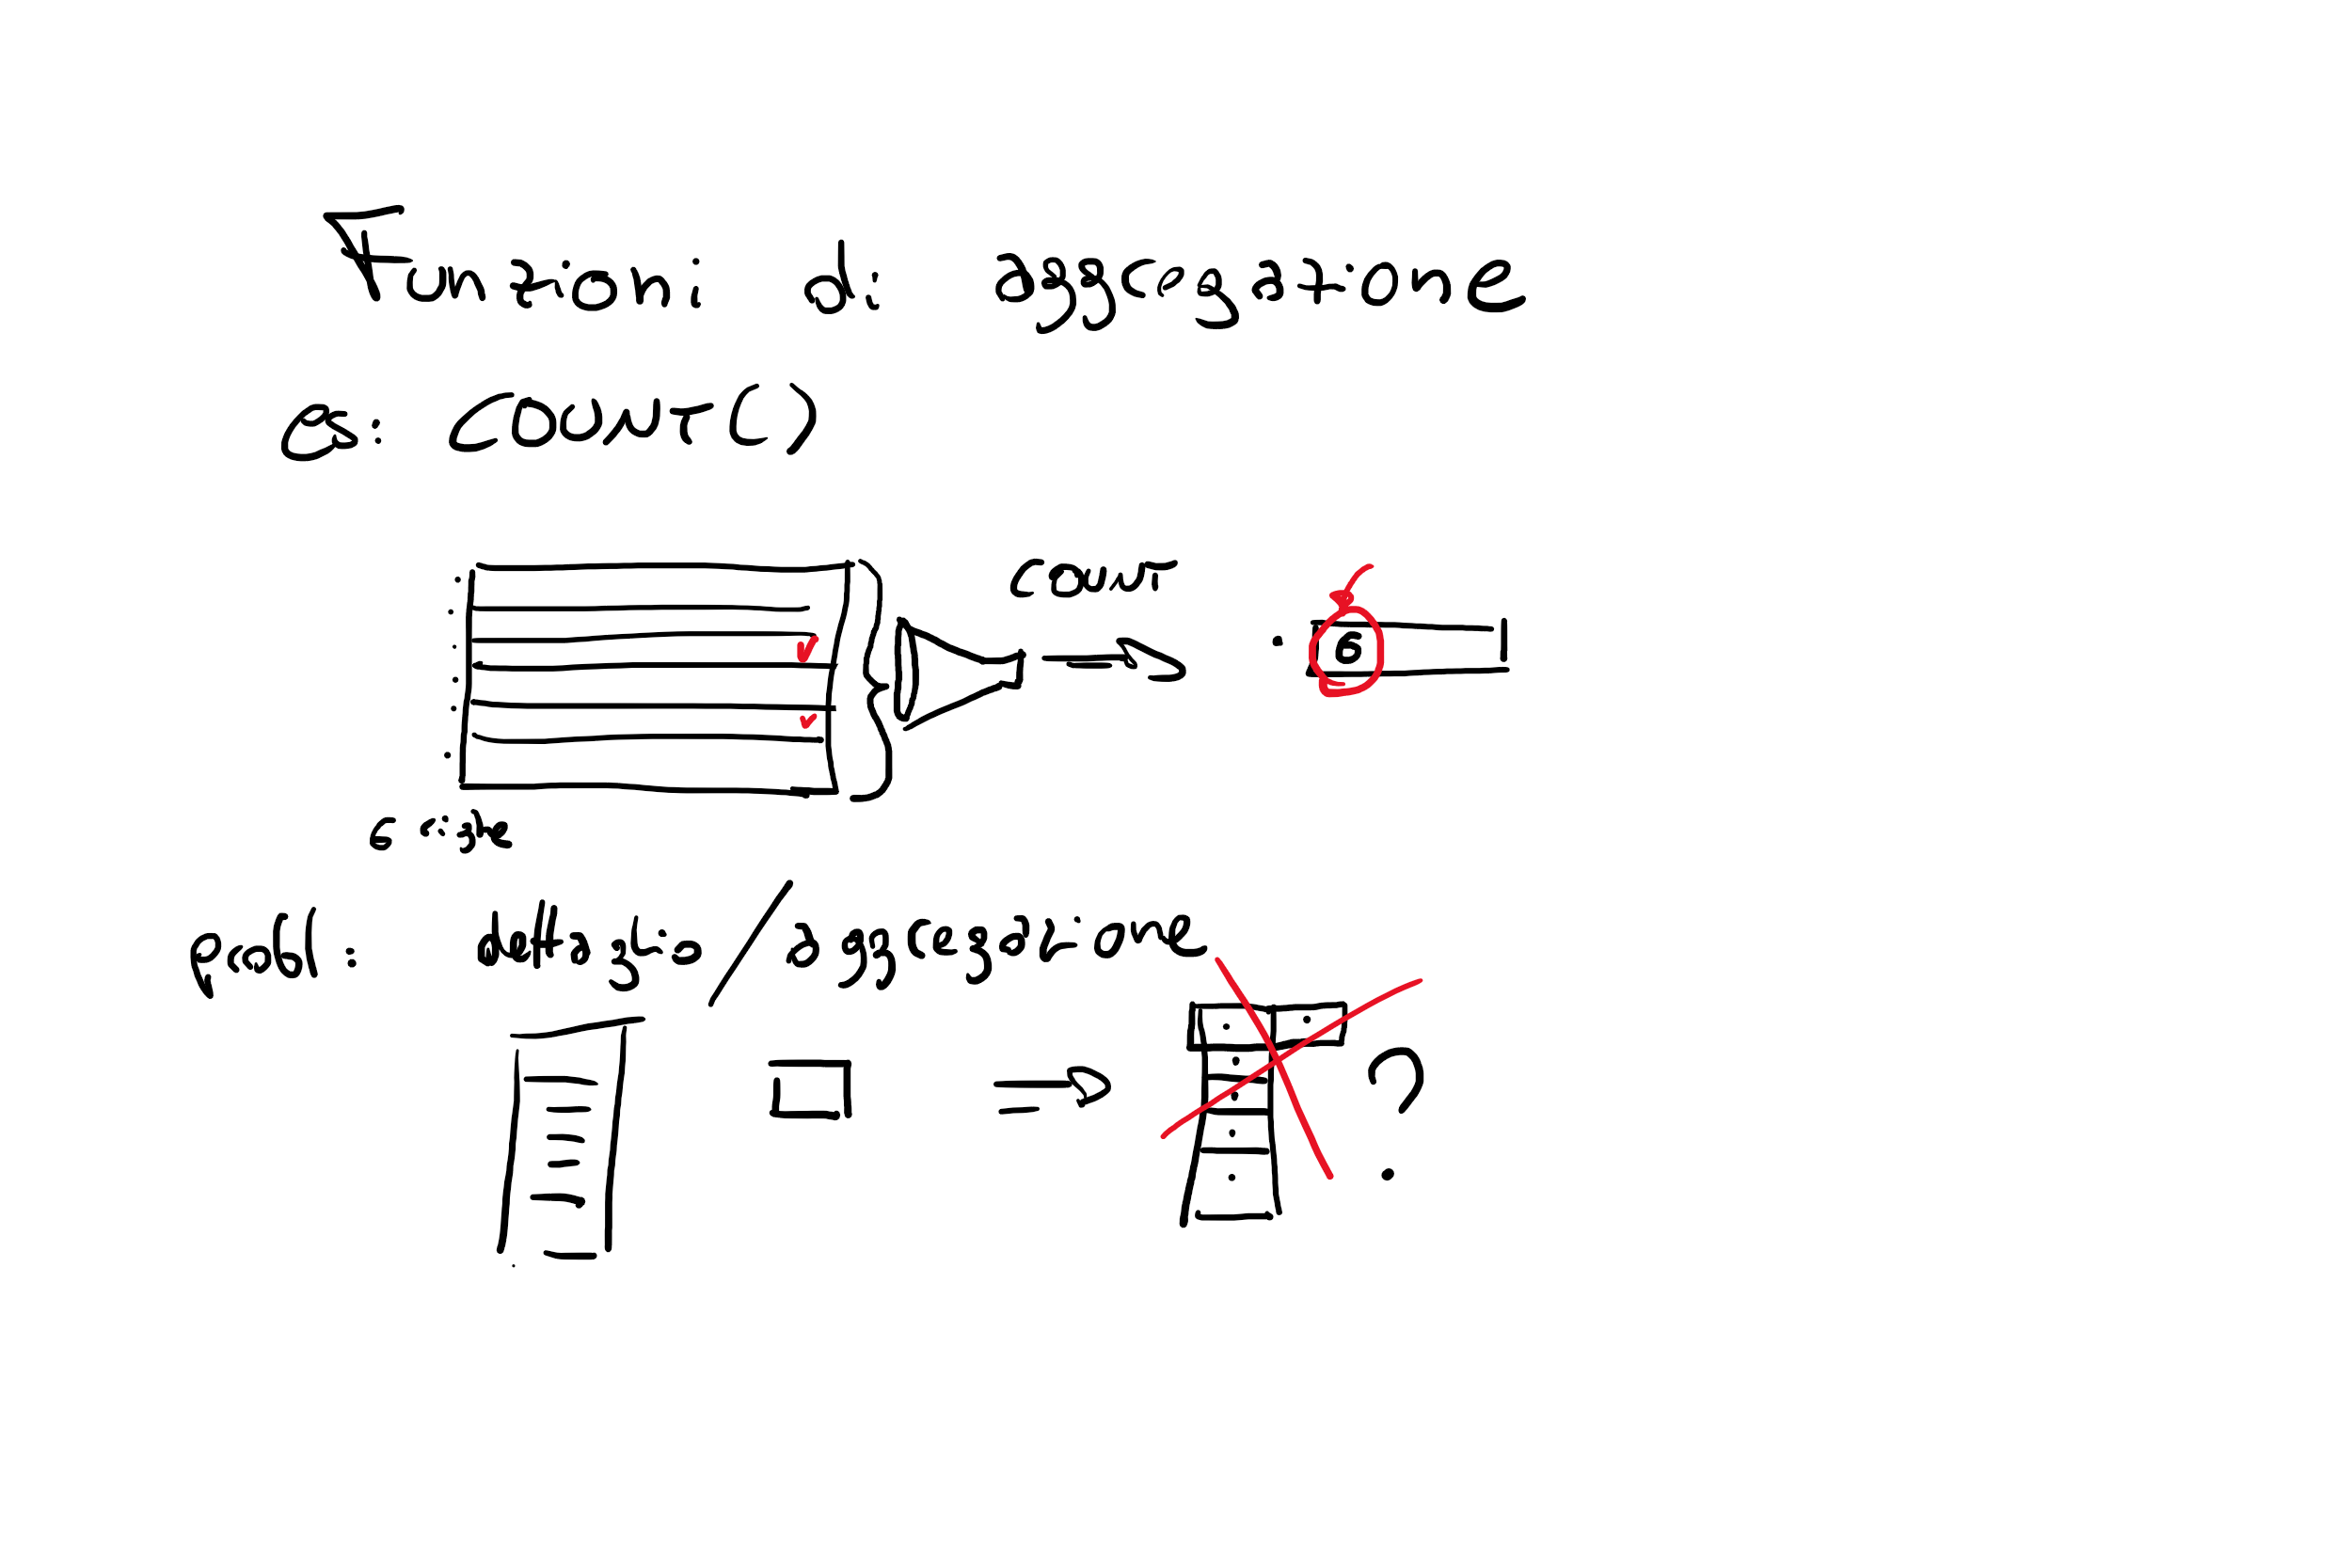 Funzioni di aggregazione
es: COUNT()
COUNT
6
6 righe
probl: dettaglio / aggregazione
?